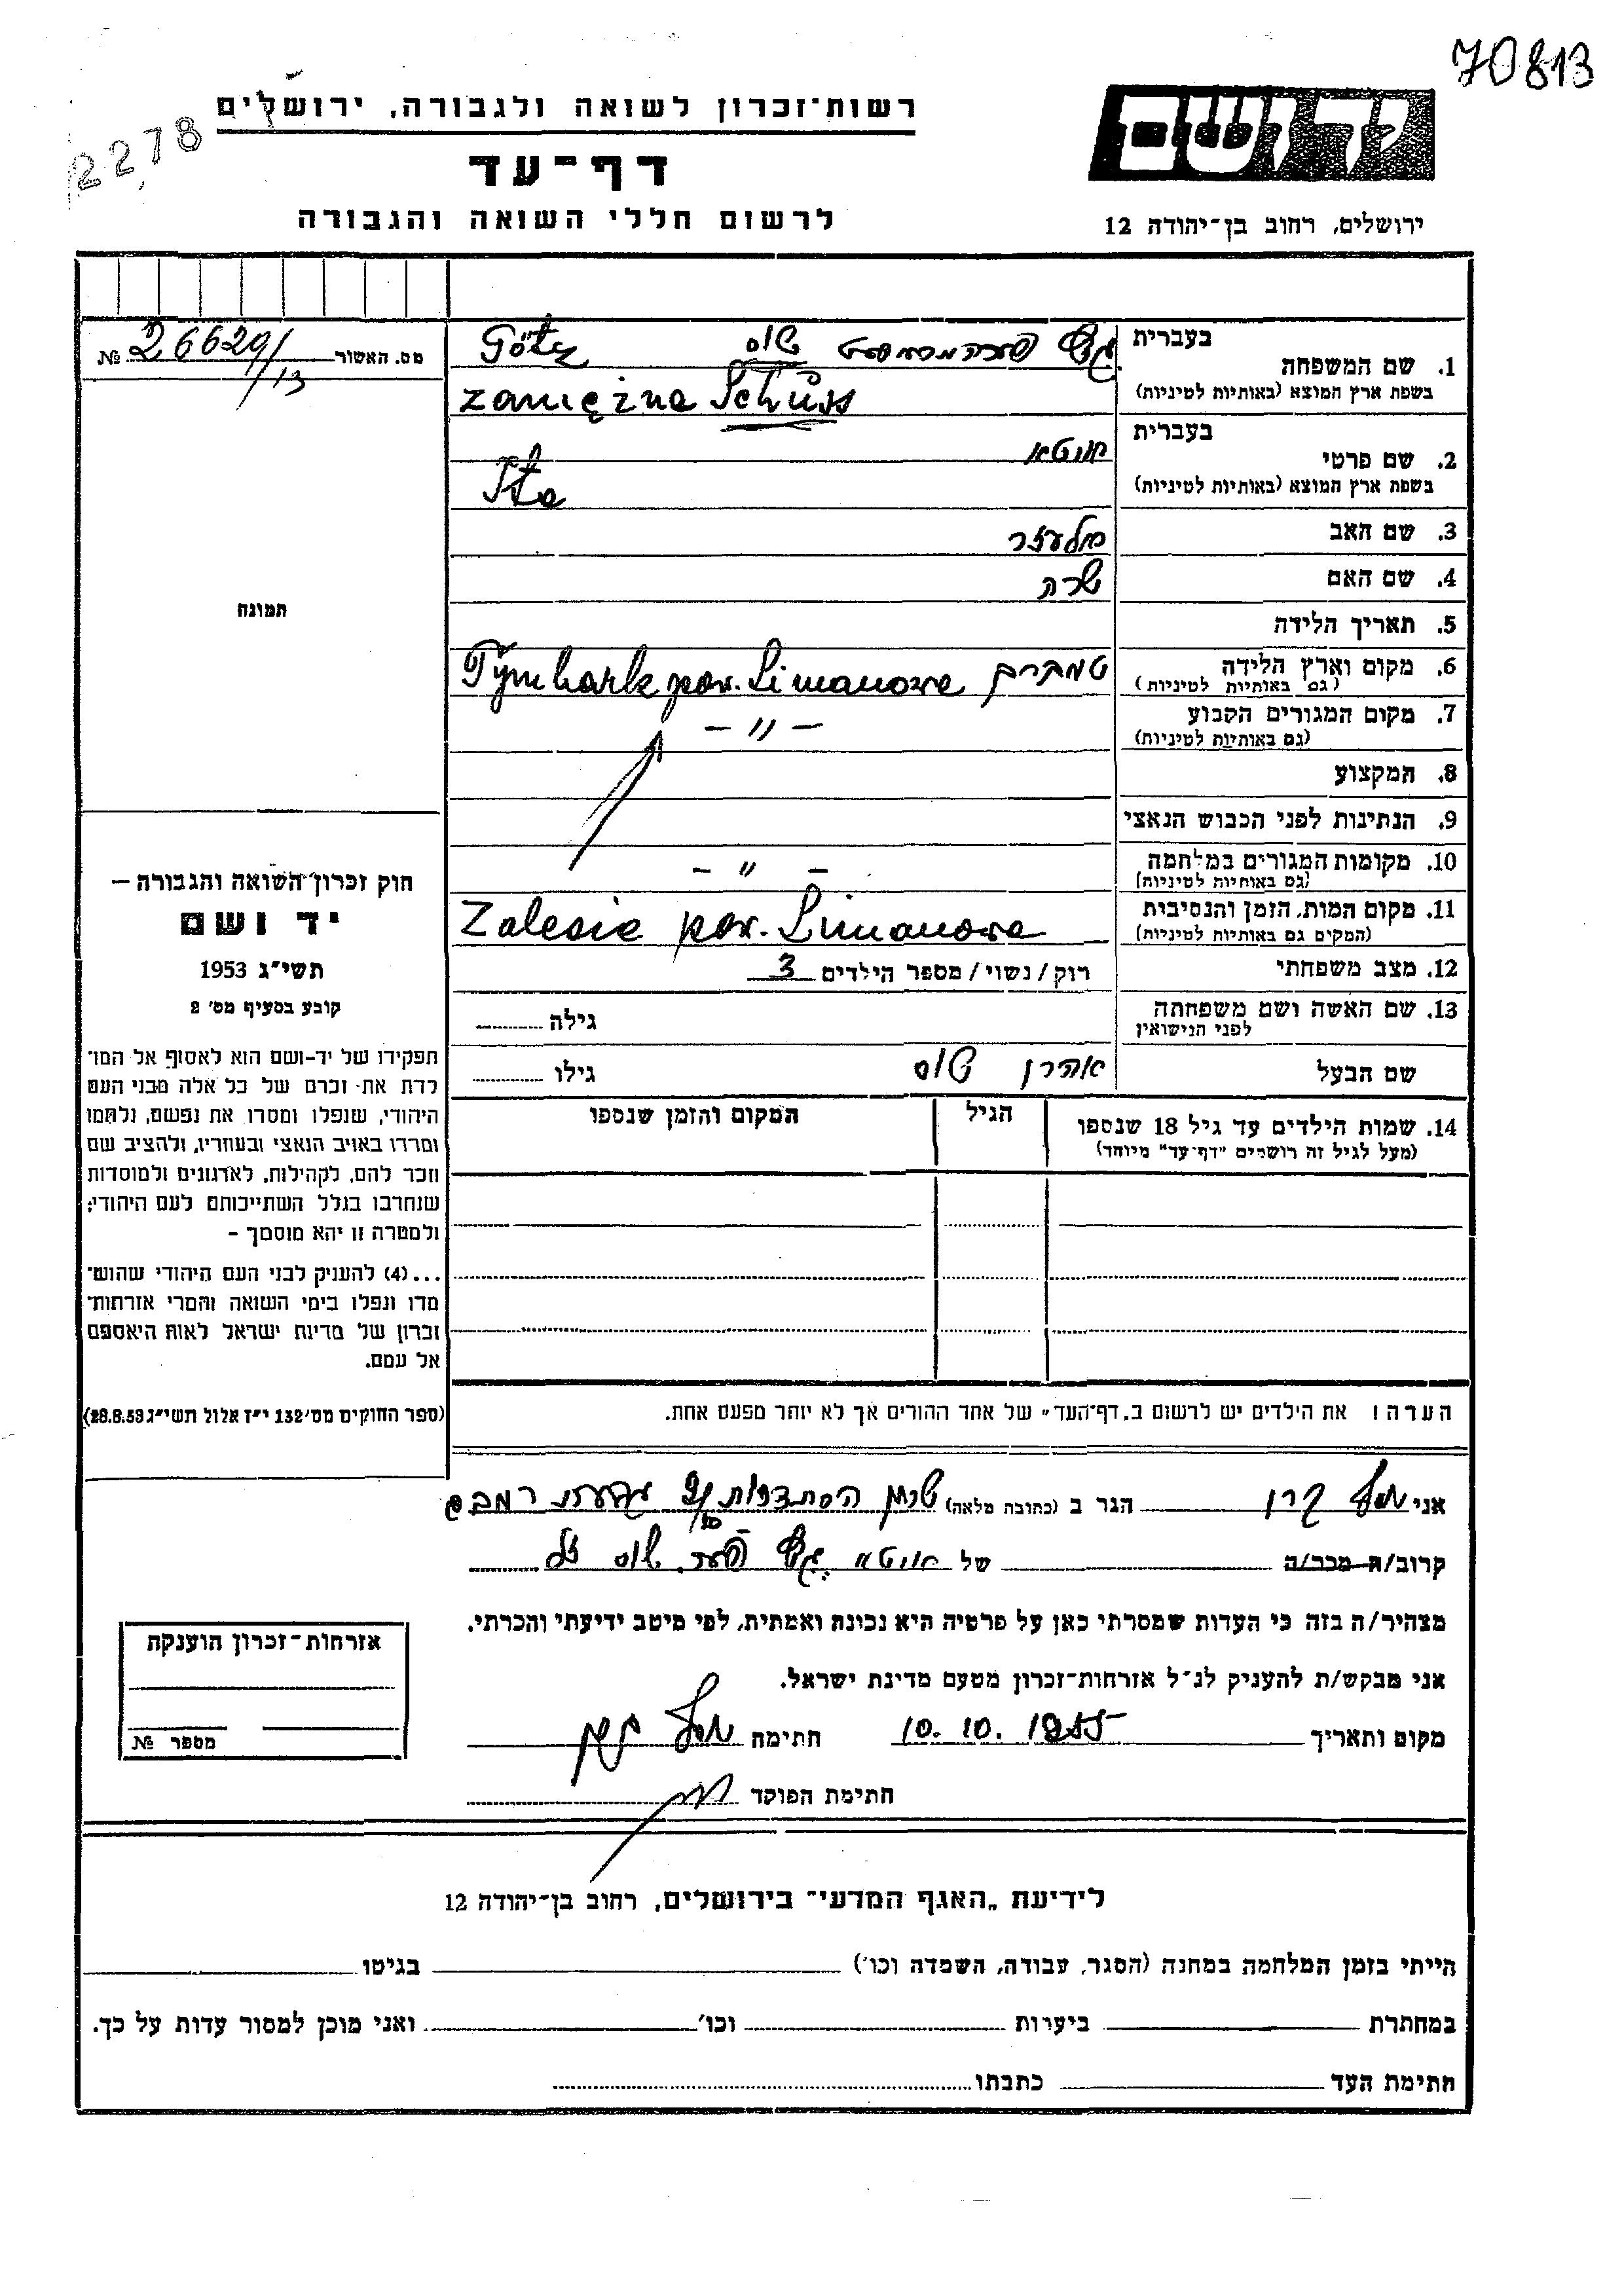 70813
רשות־זכרון לשואה ולגבורה, ירושלים
2278
דף־עד
לרשום חללי השואה והגבורה
יד ושם
ירושלים, רחוב בן־יהודה 12
מס. האשור 26629/13 №
תמונה
חוק זכרון השואה והגבורה –
יד ושם
תשי״ג 1953
קובע בסעיף מס׳ 2
תפקידו של יד-ושם הוא לאסוף אל המו־
לדת את זכרם של כל אלה מבני העם
היהודי, שנפלו ומסרו את נפשם, נלחמו
ומרדו באויב הנאצי ובעוזריו, ולהציב שם
וזכר להם, לקהילות, לארגונים ולמוסדות
שנחרבו בגלל השתייכותם לעם היהודי;
ולמטרה זו יהא מוסמך –
...(4) להעניק לבני העם היהודי שהוש־
מדו ונפלו בימי השואה והמרי אזרחות־
זכרון של מדינת ישראל לאות היאספם
אל עמם.
(ספר החוקים מס׳ 132 י״ז אלול תשי״ג 28.8.53)
1. שם המשפחה
בעברית שוס Götz
בשפת ארץ המוצא (באותיות לטיניות) zamężna Schüss
2. שם פרטי
בעברית איטא
בשפת ארץ המוצא (באותיות לטיניות) Ita
3. שם האב אלעזר
4. שם האם שרה
5. תאריך הלידה
6. מקום וארץ הלידה Tymbark pow. Limanowa
(גם באותיות לטיניות)
7. מקום המגורים הקבוע – " –
(גם באותיות לטיניות)
8. המקצוע
9. הנתינות לפני הכבוש הנאצי
10. מקומות המגורים במלחמה – " –
(גם באותיות לטיניות)
11. מקום המות, הזמן והנסיבות Zalesie pow. Limanowa
(המקום גם באותיות לטיניות)
12. מצב משפחתי רוק/נשוי/מספר הילדים 3
13. שם האשה ושם משפחתה גילה
לפני הנישואין
שם הבעל אהרן שוס גילו
14. שמות הילדים עד גיל 18 שנספו הגיל המקום והזמן שנספו
(מעל לגיל זה רושמים "דף־עד" מיוחד)
הערה: את הילדים יש לרשום ב„דף־העד" של אחד ההורים אך לא יותר מפעם אחת.
אני הגר ב (כתובת מלאה) שכון הסתדרות גבעת רמב״ם
קרוב/ה מכר/ה של איטא שוס ז״ל
מצהיר/ה בזה כי העדות שמסרתי כאן על פרטיה היא נכונה ואמתית, לפי מיטב ידיעתי והכרתי.
אני מבקש/ת להעניק לנ״ל אזרחות־זכרון מטעם מדינת ישראל.
מקום ותאריך 10.10.1955 חתימה
חתימת הפוקד
אזרחות־זכרון הוענקה
מספר №
לידיעת „האגף המדעי" בירושלים, רחוב בן־יהודה 12
הייתי בזמן המלחמה במחנה (הסגר, עבודה, השמדה וכו׳) בגיטו
במחתרת ביערות וכו׳ ואני מוכן למסור עדות על כך.
חתימת העד כתבתו